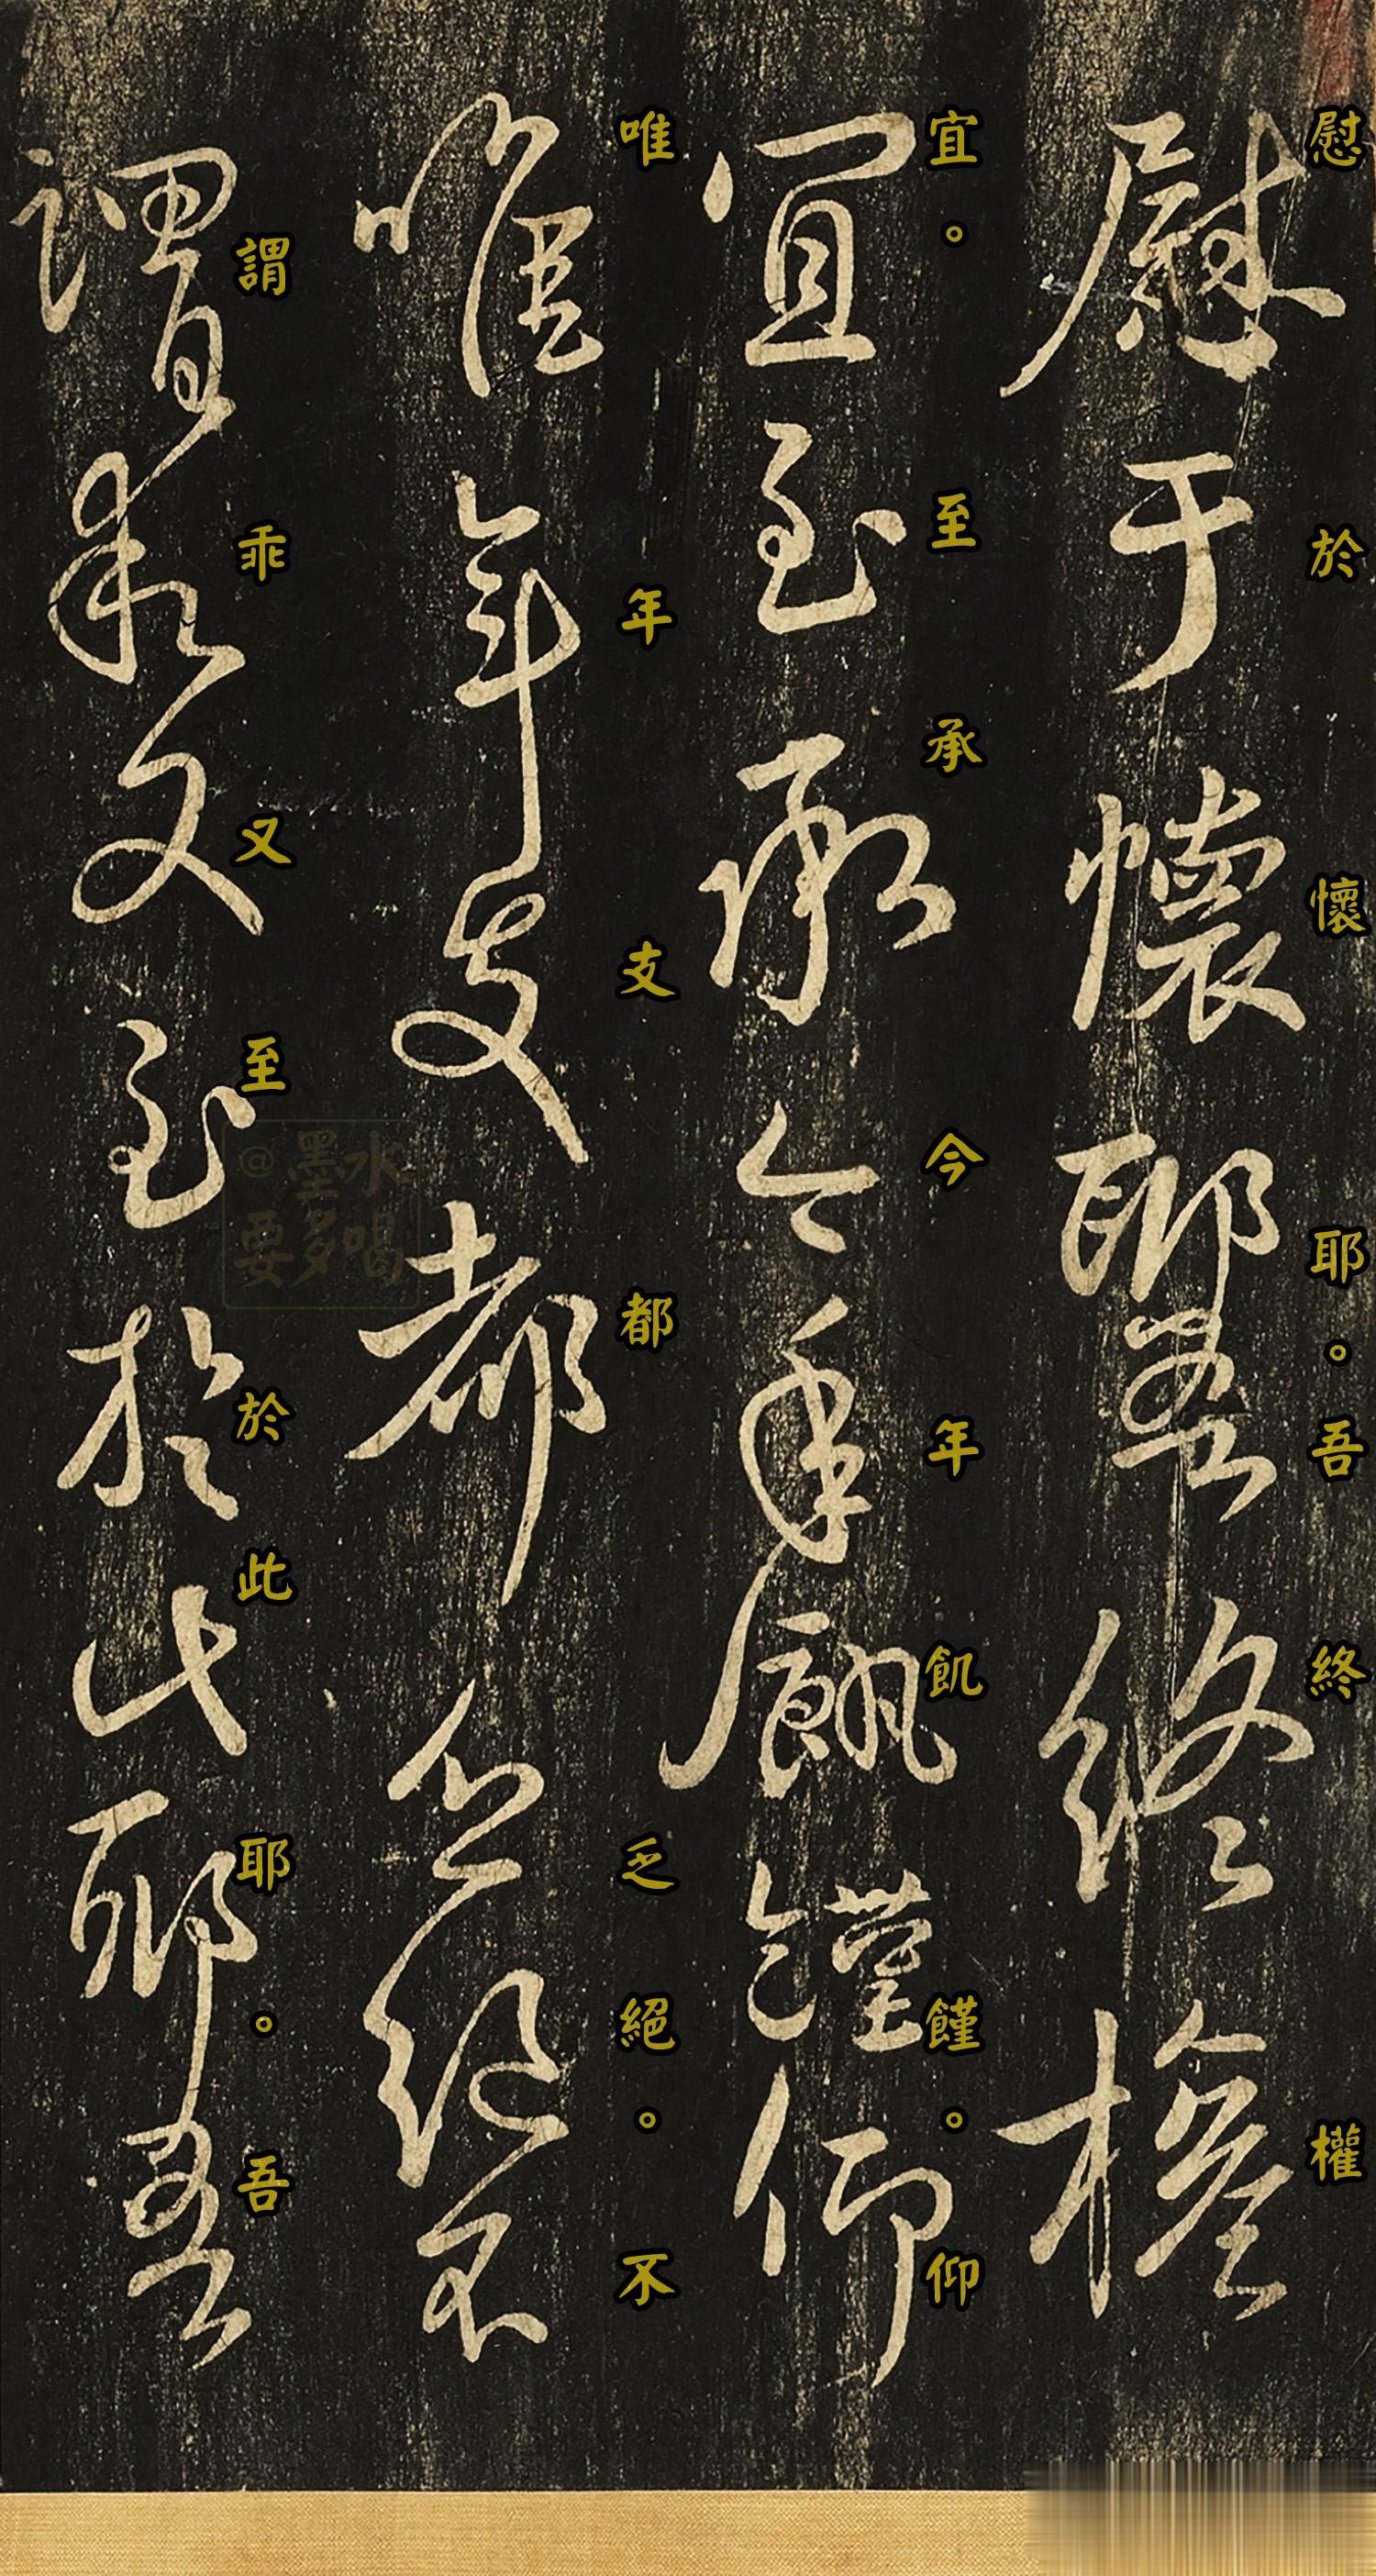 慰於懷耶。吾終權
慰于懷耶吾終權
宜。至承今年飢饉。仰
宜至承今年飢饉仰
唯年支都乏絕。不
唯年支都乏絕不
謂乖又至於此耶。吾
謂乖又至於此耶吾
@墨水
要多喝